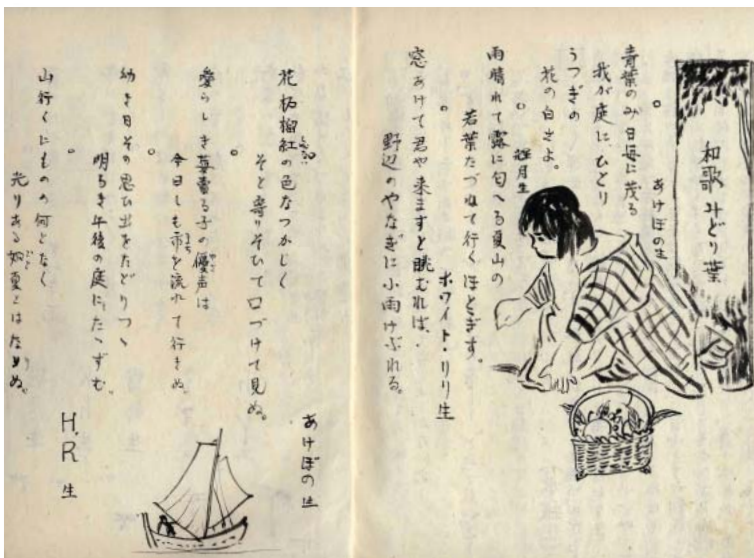 和歌 みどり葉
あけぼの生
青葉のみ日毎に茂る
我が庭に、ひとり
うつぎの
花の白さよ。
○
月生
雨晴れて露に匂へる夏山の
若葉たづねて行くほとゝぎす。
ホワイト・リリ生
窓あけて君や来ますと眺むれば、
野辺のやなぎに小雨けぶれる。
あけぼの生
花柘榴紅の色なつかしく
そと寄りそひて口づけて見ぬ。
○
愛らしき草賣る子の優声は
今日しも市を流れて行きぬ。
○
幼き日その思ひ出をたどりつゝ
明るき午後の庭に、たゝずむ。
○
山行くにものの何となく
光りある初夏とはなりぬ。
H.R生